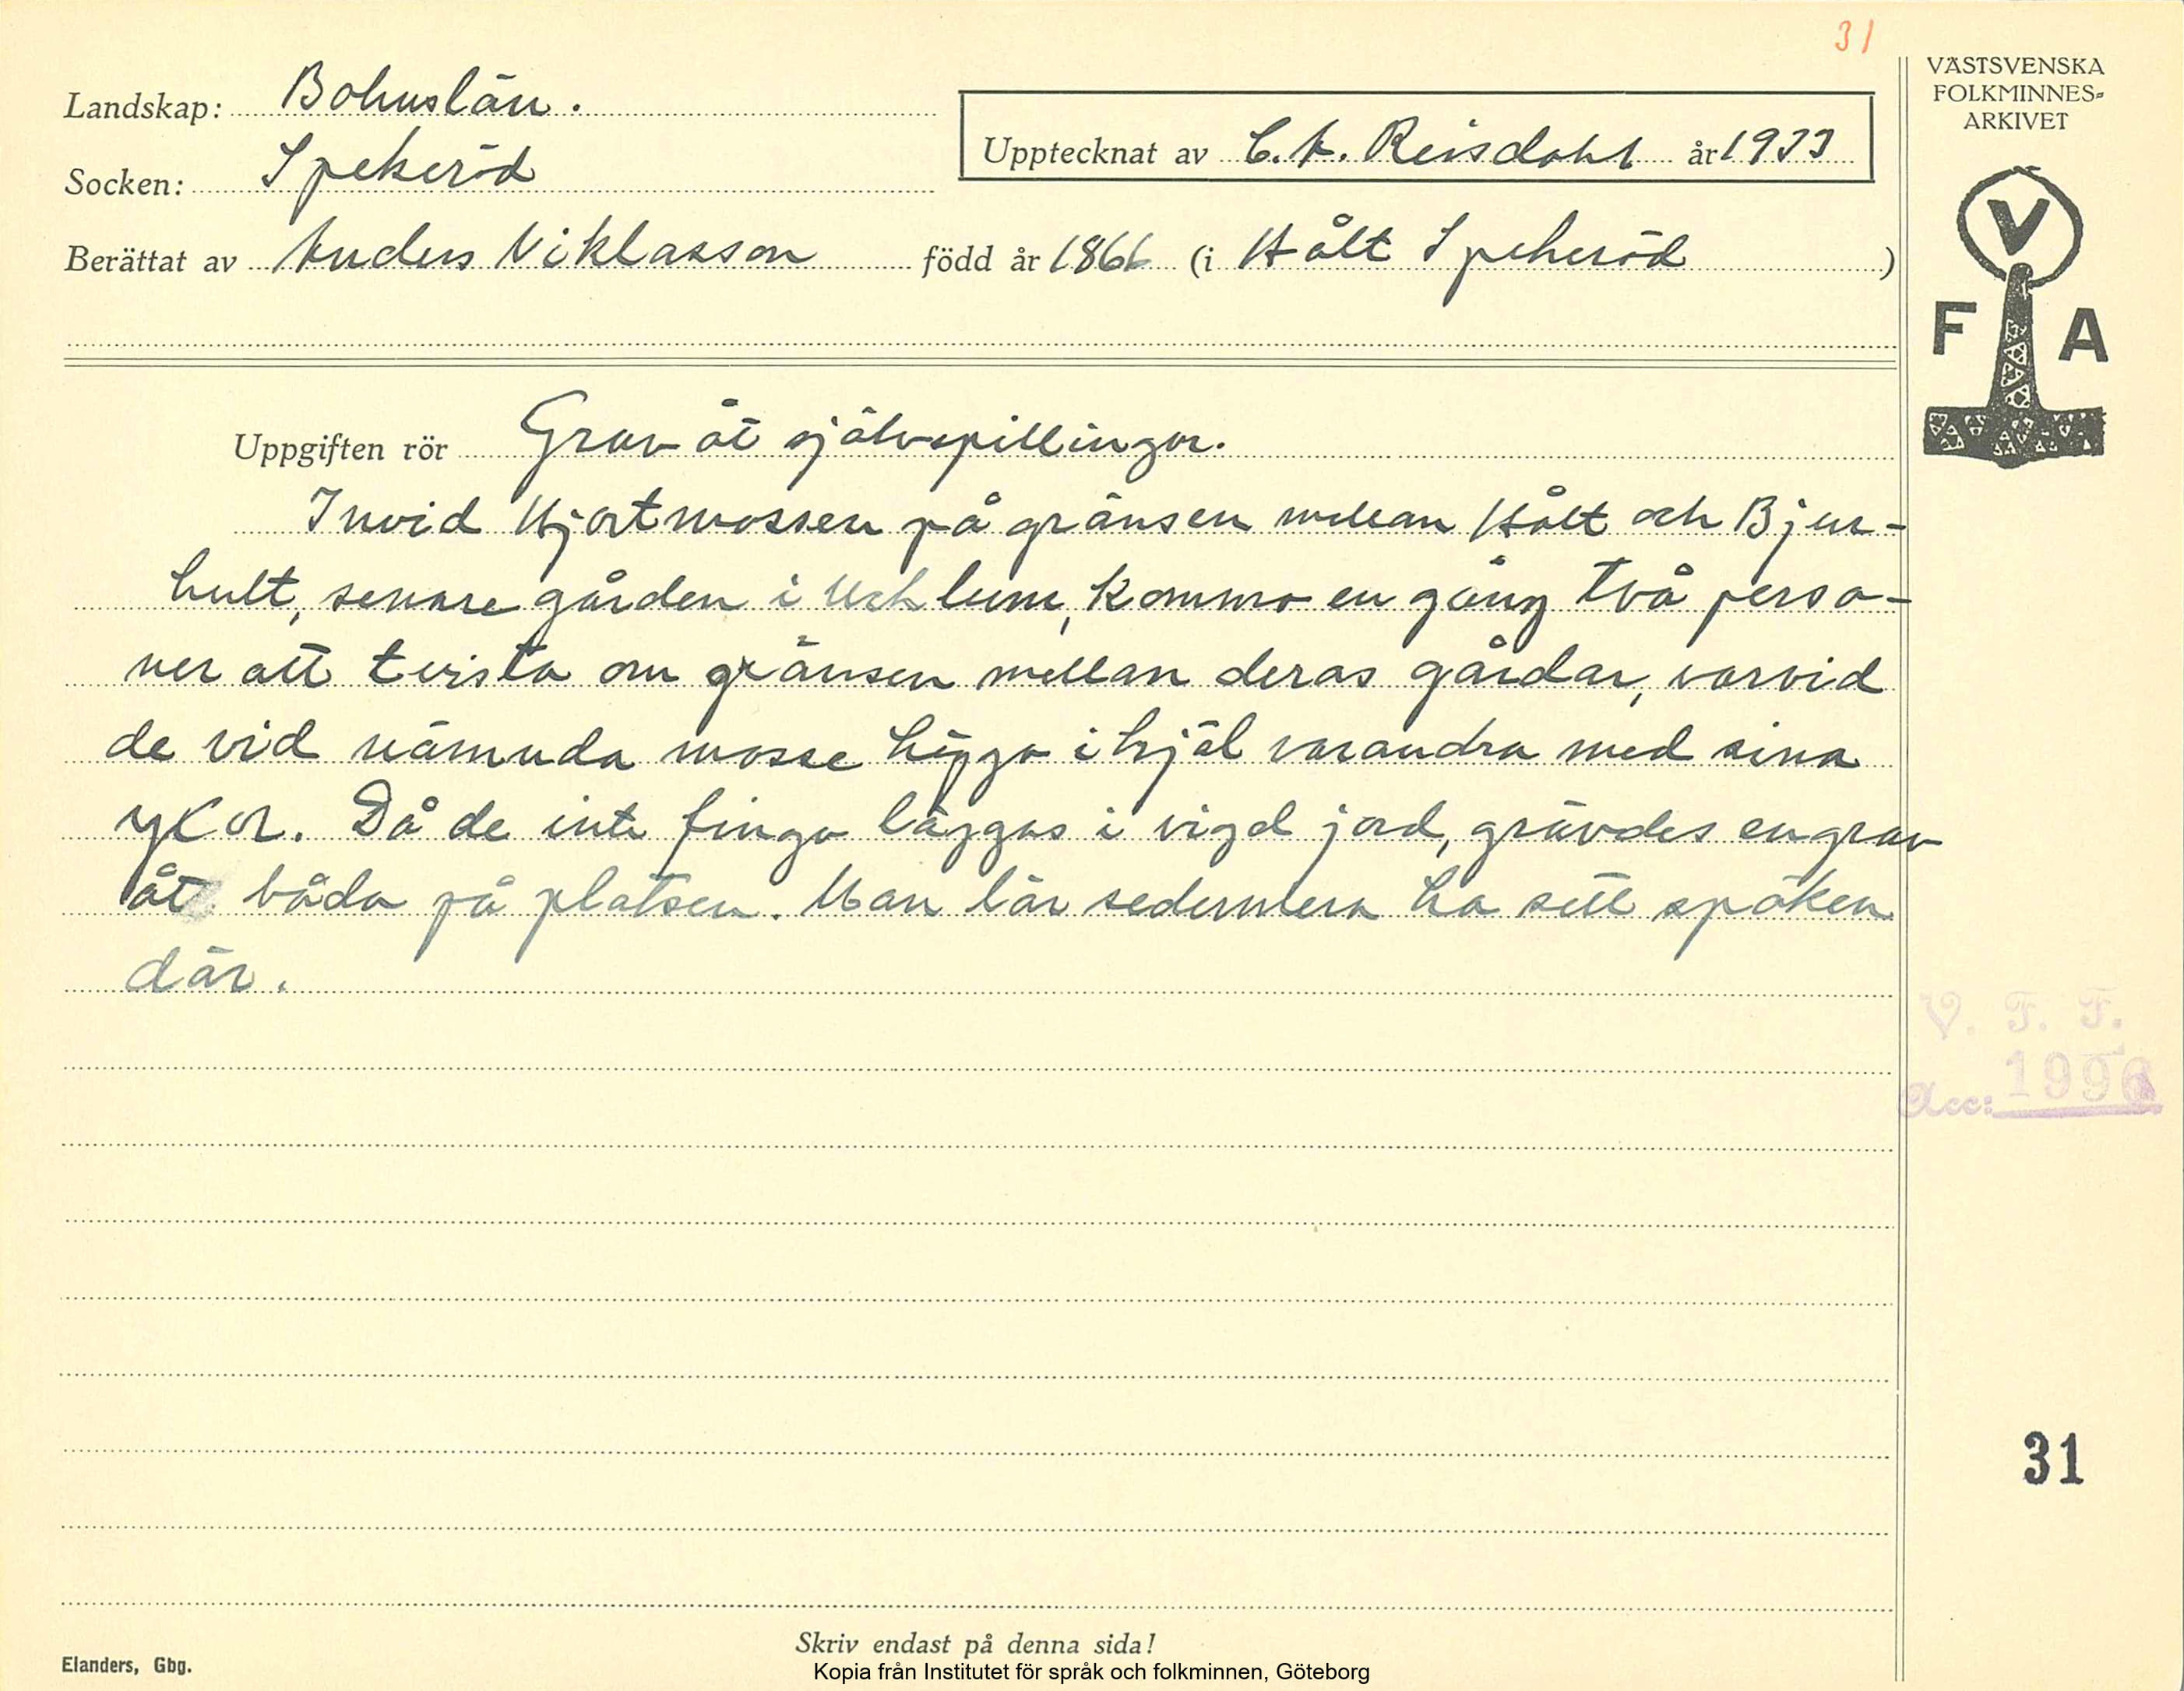 31
VÄSTSVENSKA
FOLKMINNES-
ARKIVET
Landskap: Bohuslän.
Upptecknat av C. A. Reisdahl år 1933
Socken: Spekeröd
Berättat av Anders Niklasson född år 1866 (i Hålt Spekeröd )
V
F A
Uppgiften rör Grav åt självspillingar.
Invid Hjortmossen på gränsen mellan Hålt och Bjur-
hult, senare gården i Ucklum, kommo en gång två perso-
ner att tvista om gränsen mellan deras gårdar, varvid
de vid nämnda mosse höggo ihjäl varandra med sina
yxor. Då de inte fingo läggas i vigd jord, grävdes en grav
åt båda på platsen. Man lär sedermera ha sett spöken
där.
V. F. F.
Acc: 1996
31
Skriv endast på denna sida!
Elanders, Gbg.
Kopia från Institutet för språk och folkminnen, Göteborg